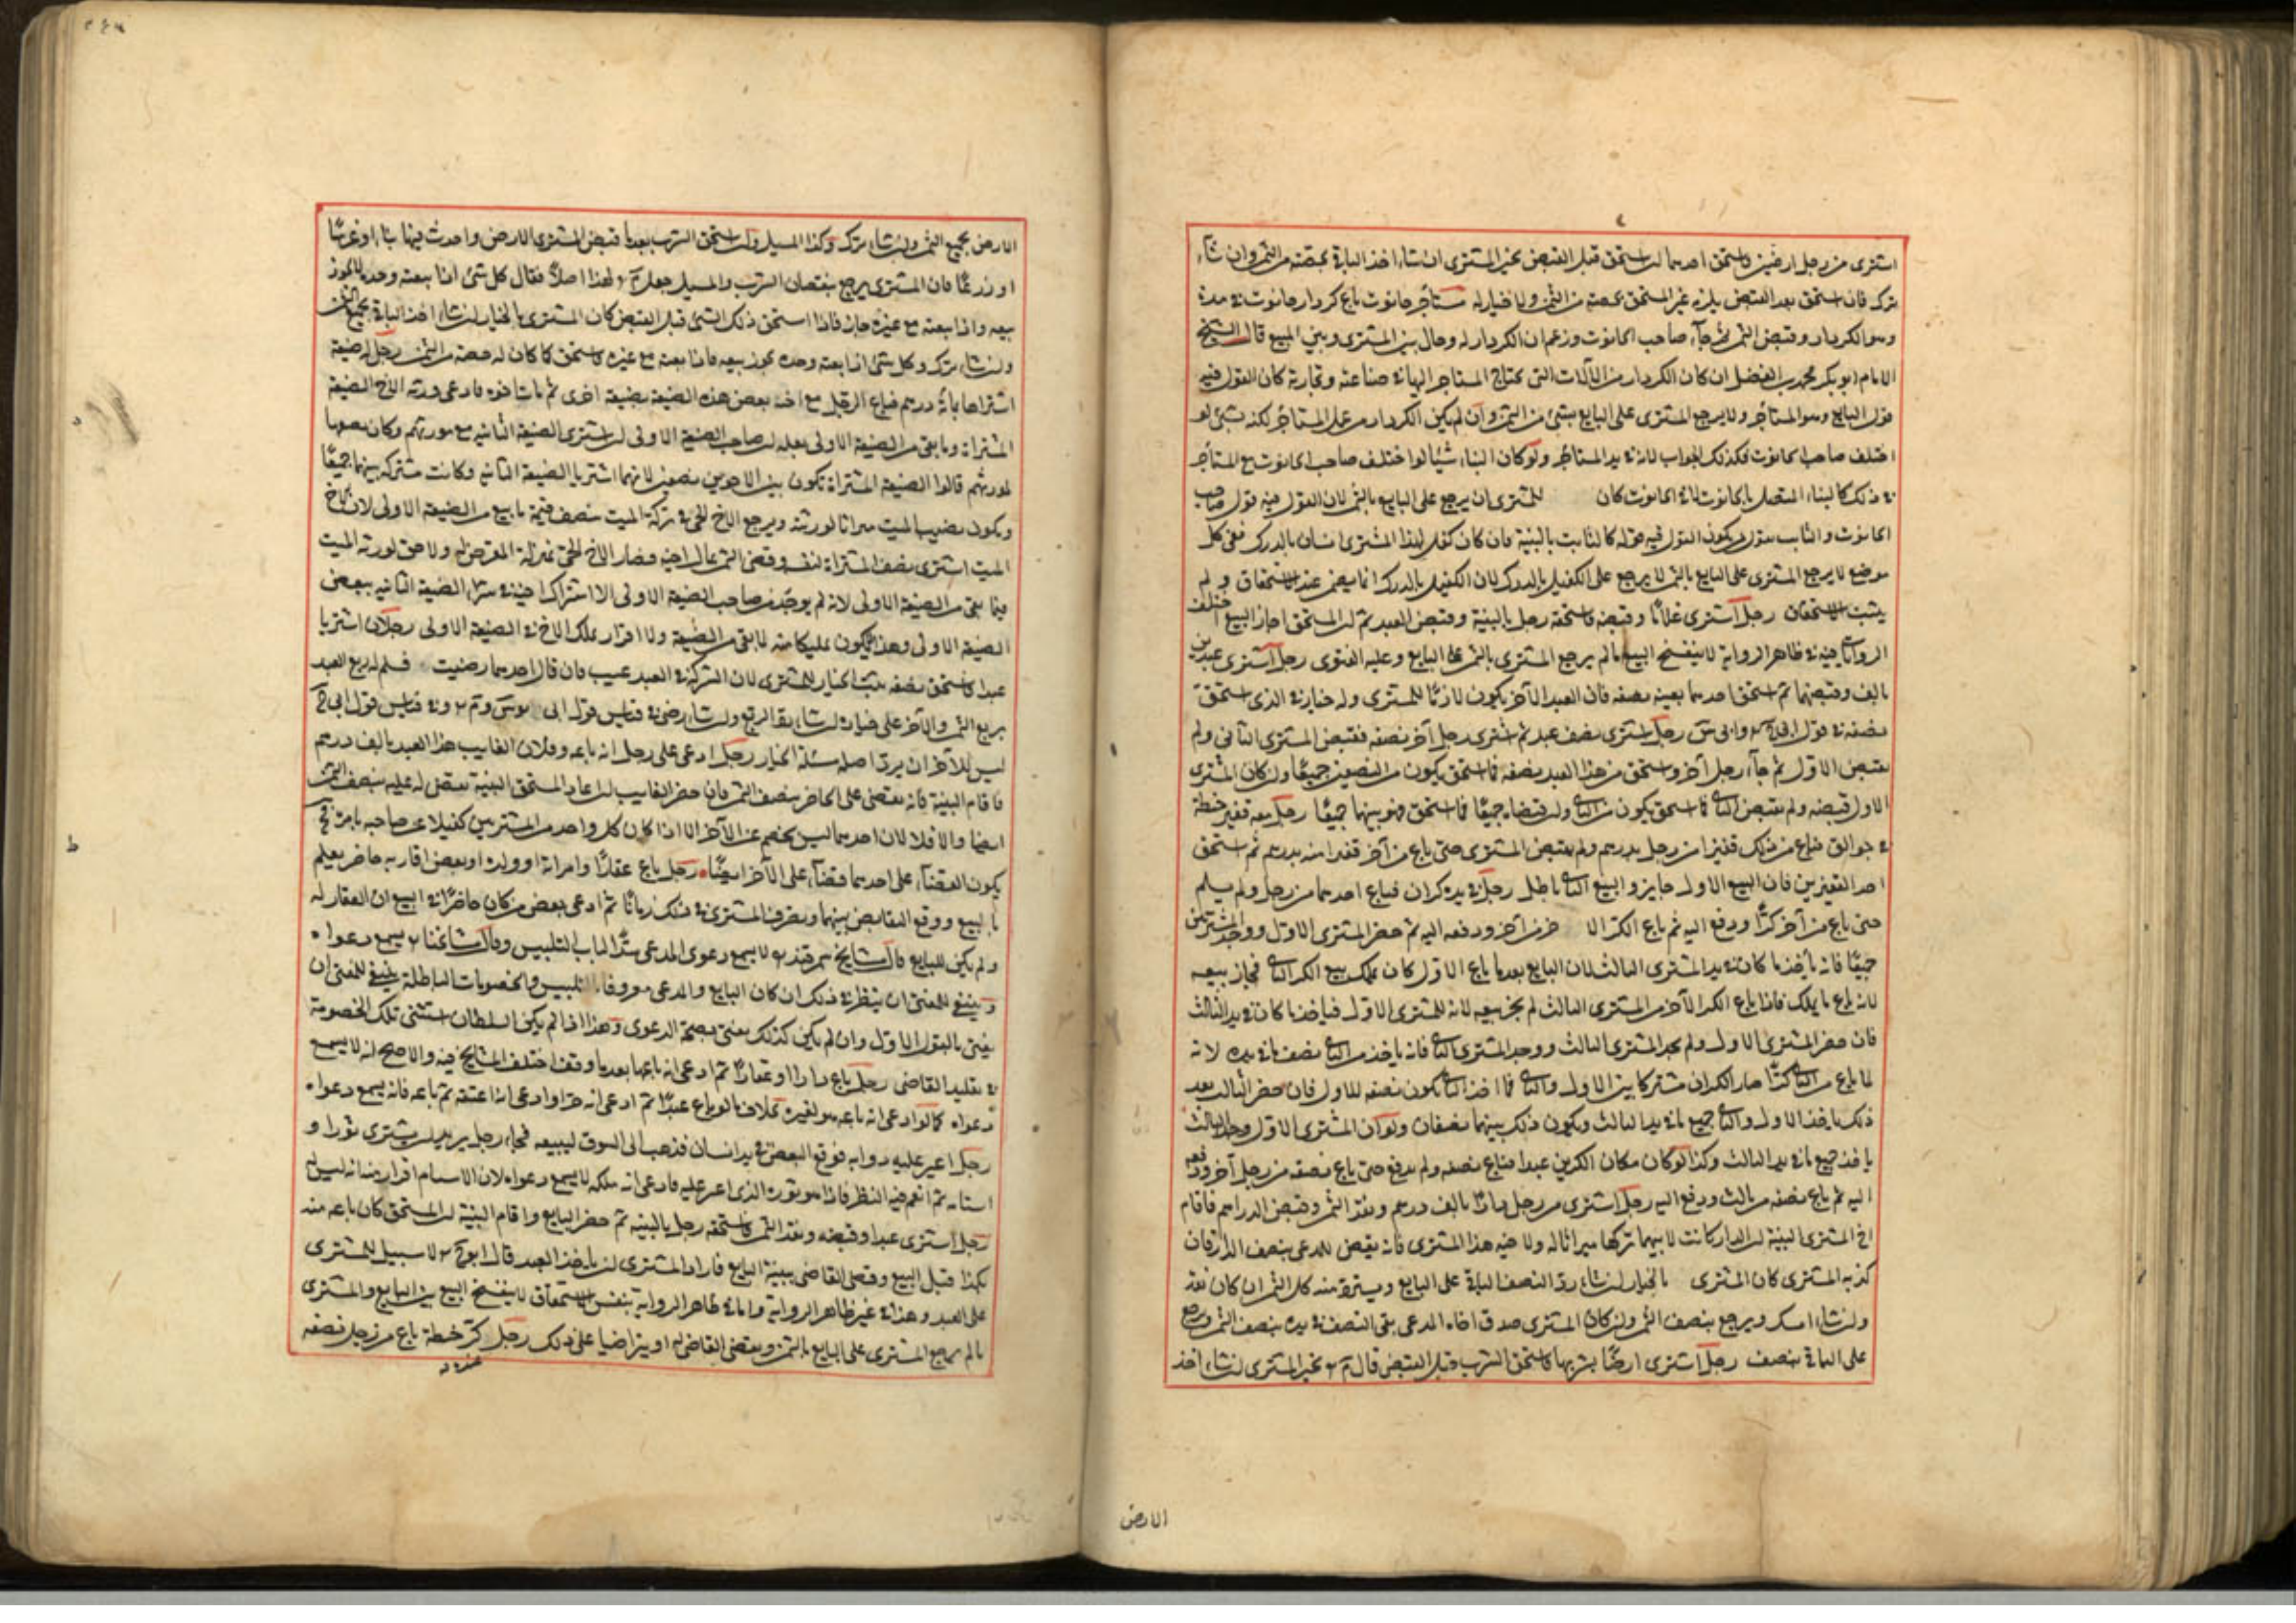 اشترى من رجل ارضين فاستحق احدهما ان استحق قبل القبض يخير المشترى ان شاء اخذ الباقى بحصته من الثمن وان شاء
ترك فان استحق بعد القبض يلزمه غير المستحق بحصته من الثمن ولا خيار له مستأجر حانوت باع كردار حانوت فى مدة
وهو الكردار وقبض الثمن ثم جاء صاحب الحانوت وزعم ان الكردار له وحال بين المشترى وبين المبيع قال الشيخ
الامام ابو بكر محمد بن الفضل ان كان الكردار من الآلات التى يحتاج المستاجر اليها فى صناعته وتجارته كان القول فيه
قول البايع وهو المستأجر ولا يرجع المشترى على البايع بشئ من الثمن وان لم يكن الكردار من عمل المستأجر لكنه شئ لو
اختلف صاحب الحانوت فكذلك الجواب لانه فى يد المستأجر ولو كان البناء شيأ لو اختلف صاحب الحانوت مع المستأجر
فى ذلك كالبناء المتصل بالحانوت كان للمشترى ان يرجع على البايع بالثمن لان القول فيه قول صاحب
الحانوت والثابت بقول من يكون القول فيه قوله كالثابت بالبينة فان كان كفل لهذا المشترى انسان بالدرك ففى كل
موضع لا يرجع المشترى على البايع بالثمن لا يرجع على الكفيل بالدرك لان الكفيل بالدرك انما يضمن عند الاستحقاق ولم
يثبت الاستحقاق رجل اشترى غلاما وقبضه فاستحقه رجل بالبينة وقبض العبد ثم ان المستحق اجاز البيع اختلفت
الروايات فيه فى ظاهر الرواية لا ينفسخ البيع ما لم يرجع المشترى بالثمن على البايع وعليه الفتوى رجل اشترى عبدين
بالف وقبضهما ثم استحق احدهما بعينه نصفه فان العبد الآخر يكون لازما للمشترى وله خيار فى الذى استحق
نصفه فى قول رجل اشترى نصف عبد ثم اشترى رجل آخر نصفه فقبض المشترى الثانى ولم
يقبض الاول ثم جاء رجل آخر واستحق من هذا العبد نصفه فما استحق يكون من النصفين جميعا وان كان المشترى
الاول قبضه ولم يقبض الثانى فما استحق يكون من الثانى وان قبضاه جميعا فما استحق فهو بينهما جميعا رجل معه قفيز حنطة
فى جوالق فباع من ذلك قفيزا من رجل بدرهم ولم يقبض المشترى حتى باع من آخر قفيزا منه بدرهم ثم استحق
احد القفيزين فان البيع الاول جايز والبيع الثانى باطل رجل فى يده كران فباع احدهما من رجل ولم يسلم
حتى باع من آخر كرا ودفع اليه ثم باع الكر من آخر ودفعه اليه ثم حضر المشترى الاول ووجد المشتريين
جميعا فانه يأخذ ما كان فى يد المشترى الثالث لان البايع بعدما باع الاول كان يملك بيع الكر الثانى فجاز بيعه
لانه باع ما يملك فاذا باع الكر الآخر من المشترى الثالث لم يجز بيعه لانه للمشترى الاول فيأخذ ما كان فى يد الثالث
فان حضر المشترى الاول ولم يجد المشترى الثالث ووجد المشترى الثانى فانه يأخذ من الثانى نصف ما فى يده لانه
لما باع من الثانى كرا صار الكران مشتركا بين الاول والثانى فما اخذ الثانى يكون نصفه للاول فان حضر الثالث بعد
ذلك يأخذ الاول والثانى جميع ما فى يد الثالث ويكون ذلك بينهما نصفان ولو ان المشترى الاول وجد الثالث
يأخذ جميع ما فى يد الثالث وكذا لو كان مكان الكرين عبدا فباع نصفه ولم يدفع حتى باع نصفه من رجل آخر ودفعه
اليه ثم باع نصفه من ثالث ودفع اليه رجل اشترى من رجل دارا بالف درهم ونقد الثمن وقبض الدراهم فاقام
اخ المشترى البينة ان الدار كانت لابيهما تركها ميراثا له ولاخيه هذا المشترى فانه يقضى للمدعى بنصف الدار فان
كذبه المشترى كان المشترى بالخيار ان شاء رد النصف الباقى على البايع ويسترد منه كل الثمن ان كان نقد
وان شاء امسك ويرجع بنصف الثمن وان كان المشترى صدق اخاه المدعى بقى النصف فى يده بنصف الثمن ويرجع
على البايع بنصف رجل اشترى ارضا بشربها فاستحق الشرب قبل القبض قال يخير المشترى ان شاء اخذ
الارض
الارض بجميع الثمن وان شاء ترك وكذا المسيل وان استحق الشرب بعد ما قبض المشترى الارض واحدث فيها بناء او غرسا
او زرعا فان المشترى يرجع بنقصان الشرب والمسيل جعل لهذا اصلا فقال كل شئ اذا بعته وحده لا يجوز
بيعه واذا بعته مع غيره جاز فاذا استحق ذلك الشئ قبل القبض كان المشترى بالخيار ان شاء اخذ الباقى بجميع الثمن
وان شاء ترك وكل شئ اذا بعته وحده يجوز بيعه فاذا بعته مع غيره فاستحق كان له حصة من الثمن رجل له ضيعة
اشتراها بمائة درهم فباع الرجل مع اخيه بعض هذه الضيعة بضيعة اخرى ثم مات اخوه فادعى ورثة الاخ الضيعة
المشتراة وما بقى من الضيعة الاولى ان صاحب الضيعة الاولى اشترى الضيعة الثانية مع مورثهم وكان بعضها
لمورثهم قالوا الضيعة المشتراة تكون بين الاخوين نصفين لانهما اشتريا الضيعة الثانية وكانت مشتركة بينهما جميعا
ويكون نصيب الميت ميراثا لورثته ويرجع الاخ الحى فى تركة الميت بنصف قيمة ما بيع من الضيعة الاولى لان الاخ
الميت اشترى نصف المشتراة لنفسه وقضى الثمن بمال اخيه فصار الاخ الحى بمنزلة المقرض له ولا حق لورثة الميت
فيما بقى من الضيعة الاولى لانه لم يوجد من صاحب الضيعة الاولى الا اشتراك اخيه فى شراء الضيعة الثانية ببعض
الضيعة الاولى وهذا لا يكون تمليكا منه لما بقى من الضيعة ولا اقرار بملك الاخ فى الضيعة الاولى رجلان اشتريا
عبدا فاستحق نصفه يثبت الخيار للمشترى لان الشركة فى العبد عيب فان قال احدهما رضيت فله ربع العبد
بربع الثمن والآخر على خياره ان شاء نقد الربع وان شاء رضى فى قياس قول ابى يوسف ومحمد وفى قياس قول ابى
ليس للآخر ان يرد اصله مسئلة الخيار رجل ادعى على رجل انه باعه وفلان الغايب هذا العبد بالف درهم
فاقام البينة فانه يقضى على الحاضر بنصف الثمن فان حضر الغايب ان اعاد المستحق البينة يقضى له عليه بنصف الثمن
ايضا والا فلا لان احدهما ليس بخصم عن الآخر الا اذا كان كل واحد من المشتريين كفيلا عن صاحبه بامره
يكون القضاء على احدهما قضاء على الآخر ايضا رجل باع عقارا وامرأته او ولده او بعض اقاربه حاضر يعلم
بالبيع ووقع التقابض بينهما وتصرف المشترى فى ذلك زمانا ثم ادعى بعض من كان حاضرا فى البيع ان العقار له
ولم يكن للبايع قال مشايخ سمرقند لا يسمع دعوى المدعى سدا لباب التلبيس وقال مشايخنا يسمع دعواه
وينبغى للمفتى ان ينظر فى ذلك ان كان البايع والمدعى معروفا بالتلبيس والخصومات الباطلة ينبغى للمفتى ان
يفتى بالقول الاول وان لم يكن كذلك يفتى بصحة الدعوى وهذا اذا لم يكن السلطان استثنى تلك الخصومة
فى تقليد القاضى رجل باع دارا او عقارا ثم ادعى انه باعها بعدما وقف اختلف المشايخ فيه والاصح انه لا يسمع
دعواه كما لو ادعى انه باعه هو لغيره بخلاف ما لو باع عبدا ثم ادعى انه حر او ادعى انه اعتقه ثم باعه فانه يسمع دعواه
رجل اغير عليه دوابه فوقع البعض فى يد انسان فذهب الى السوق ليبيعه فجاء رجل يريد ان يشترى ثورا و
استامه ثم انعم فيه النظر فاذا هو ثوره الذى اغير عليه فادعى انه ملكه لا يسمع دعواه لان الاستيام اقرار منه انه ليس له
رجل اشترى عبدا وقبضه ونقد الثمن فاستحقه رجل بالبينة ثم حضر البايع واقام البينة ان المستحق كان باعه منه
بكذا قبل البيع وقضى القاضى ببينة البايع فاراد المشترى ان يأخذ العبد قال ابو لا سبيل للمشترى
على العبد وهذا فى غير ظاهر الرواية واما فى ظاهر الرواية بنفس الاستحقاق لا ينفسخ البيع بين البايع والمشترى
ما لم يرجع المشترى على البايع بالثمن ويقضى القاضى له او يتراضيا على ذلك رجل كر حنطة باع من رجل نصفه